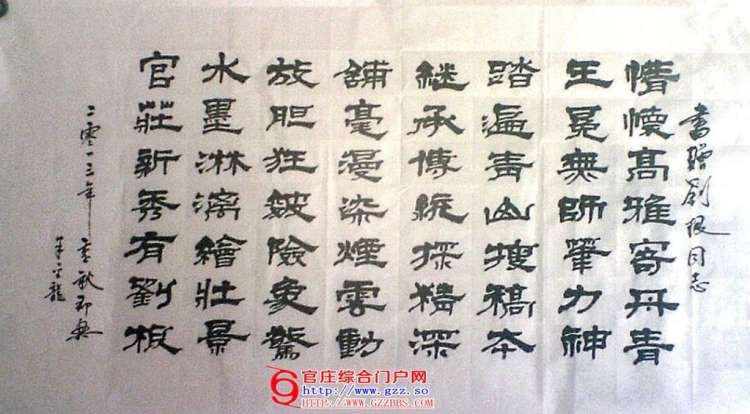 書贈劉根同志
情懷高雅寄丹青
王冕無師筆力神
踏遍青山搜稿本
継承傳統探精深
鋪毫漫染煙雲動
放胆狂皴險象驚
水墨淋漓繪壯景
官莊新秀有劉根
二零一三年 秋即興
龍
官庄综合门户网
http://www.gzz.so
WWW.GZZBBS.COM